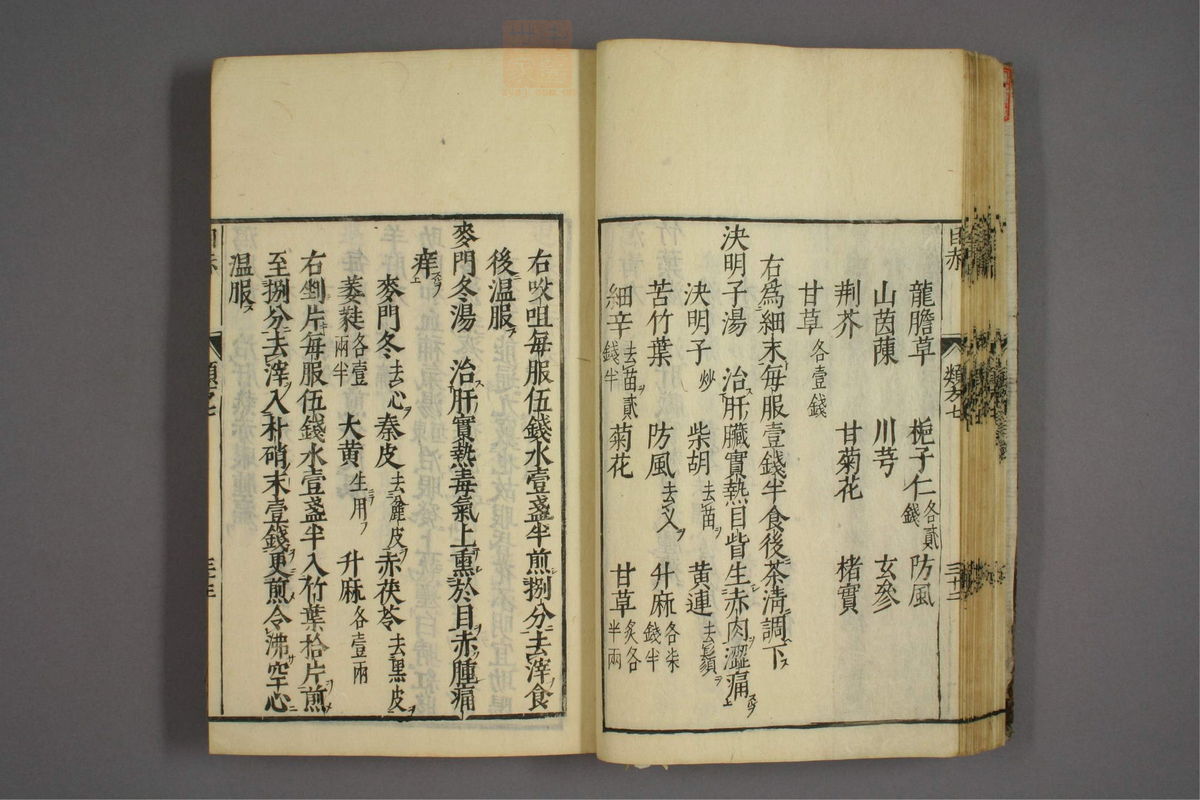 目赤 類方七 三十二
龍膽草 梔子仁各貳錢 防風
山茵蔯 川芎 玄參
荆芥 甘菊花 楮實
甘草各壹錢
右為細末每服壹錢半食後茶清調下
決明子湯 治肝臟實熱目眥生赤肉澀痛
決明子炒 柴胡去苗 黃連去鬚
苦竹葉 防風去叉 升麻各柒錢半
細辛去苗貳錢半 菊花 甘草炙各半兩
右㕮咀每服伍錢水壹盞半煎捌分去滓食
後温服
麥門冬湯 治肝實熱毒氣上熏於目赤腫痛
痒
麥門冬去心 秦皮去麄皮 赤茯苓去黑皮
萎蕤各壹兩半 大黄生用 升麻各壹兩
右剉片每服伍錢水壹盞半入竹葉拾片煎
至捌分去滓入朴硝末壹錢更煎令沸空心
温服